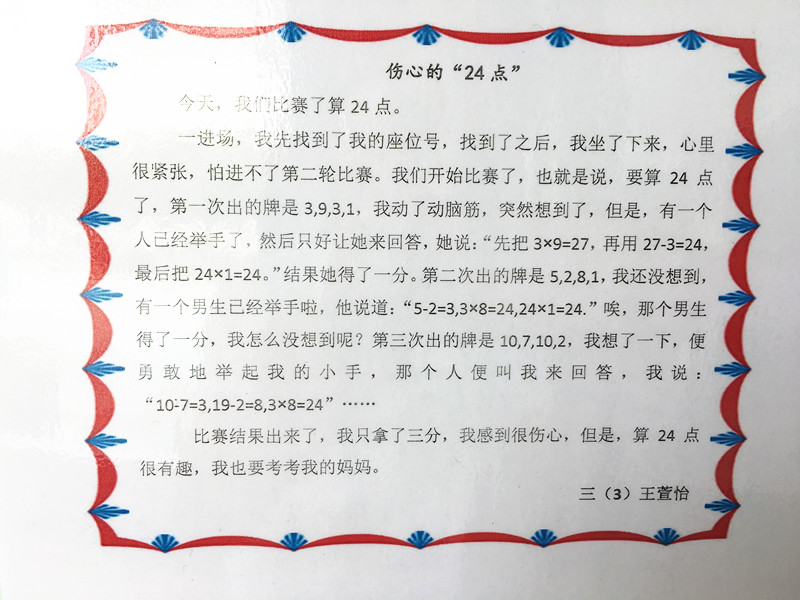 伤心的“24点”
今天，我们比赛了算24点。
一进场，我先找到了我的座位号，找到了之后，我坐了下来，心里
很紧张，怕进不了第二轮比赛。我们开始比赛了，也就是说，要算 24 点
了，第一次出的牌是3,9,3,1，我动了动脑筋，突然想到了，但是，有一个
人已经举手了，然后只好让她来回答，她说：“先把3×9=27，再用27-3=24，
最后把24×1=24。”结果她得了一分。第二次出的牌是5,2,8,1，我还没想到，
有一个男生已经举手啦，他说道：“5-2=3,3×8=24,24×1=24.”唉，那个男生
得了一分，我怎么没想到呢？第三次出的牌是10,7,10,2，我想了一下，便
勇敢地举起我的小手，那个人便叫我来回答，我说：
“10-7=3,19-2=8,3×8=24”……
比赛结果出来了，我只拿了三分，我感到很伤心，但是，算 24 点
很有趣，我也要考考我的妈妈。
三（3）王萱怡